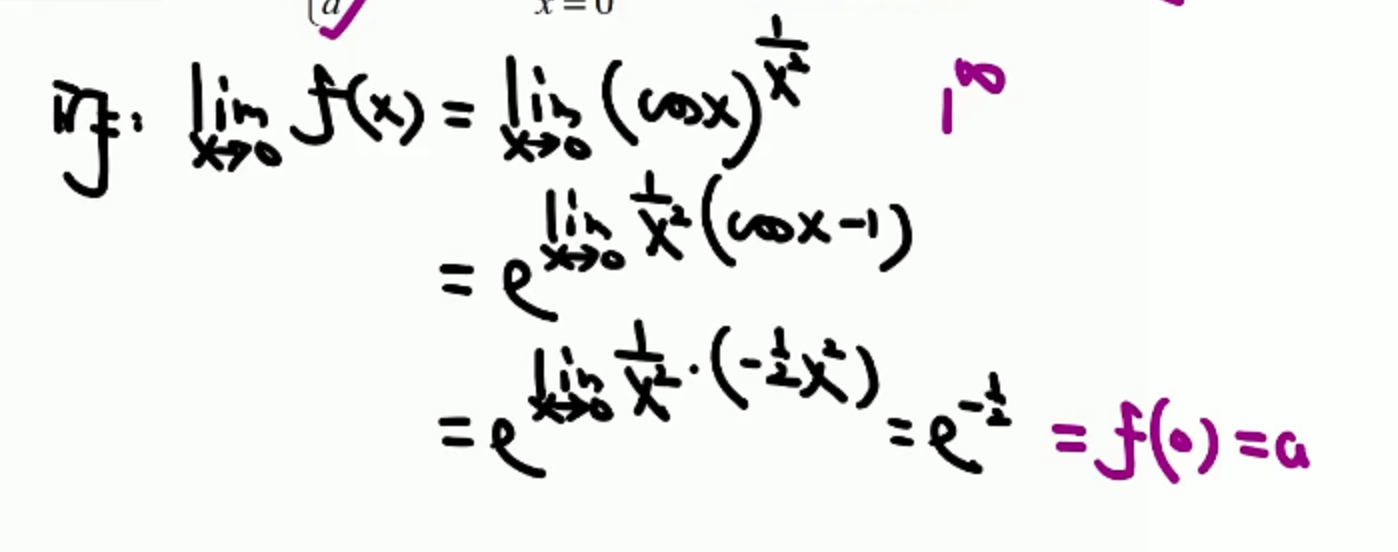 a x = 0
证: lim_{x→0} f(x) = lim_{x→0} (cosx)^{1/x²} 1^∞
= e^{lim_{x→0} 1/x² (cosx-1)}
= e^{lim_{x→0} 1/x² · (-1/2 x²)} = e^{-1/2} = f(0) = a